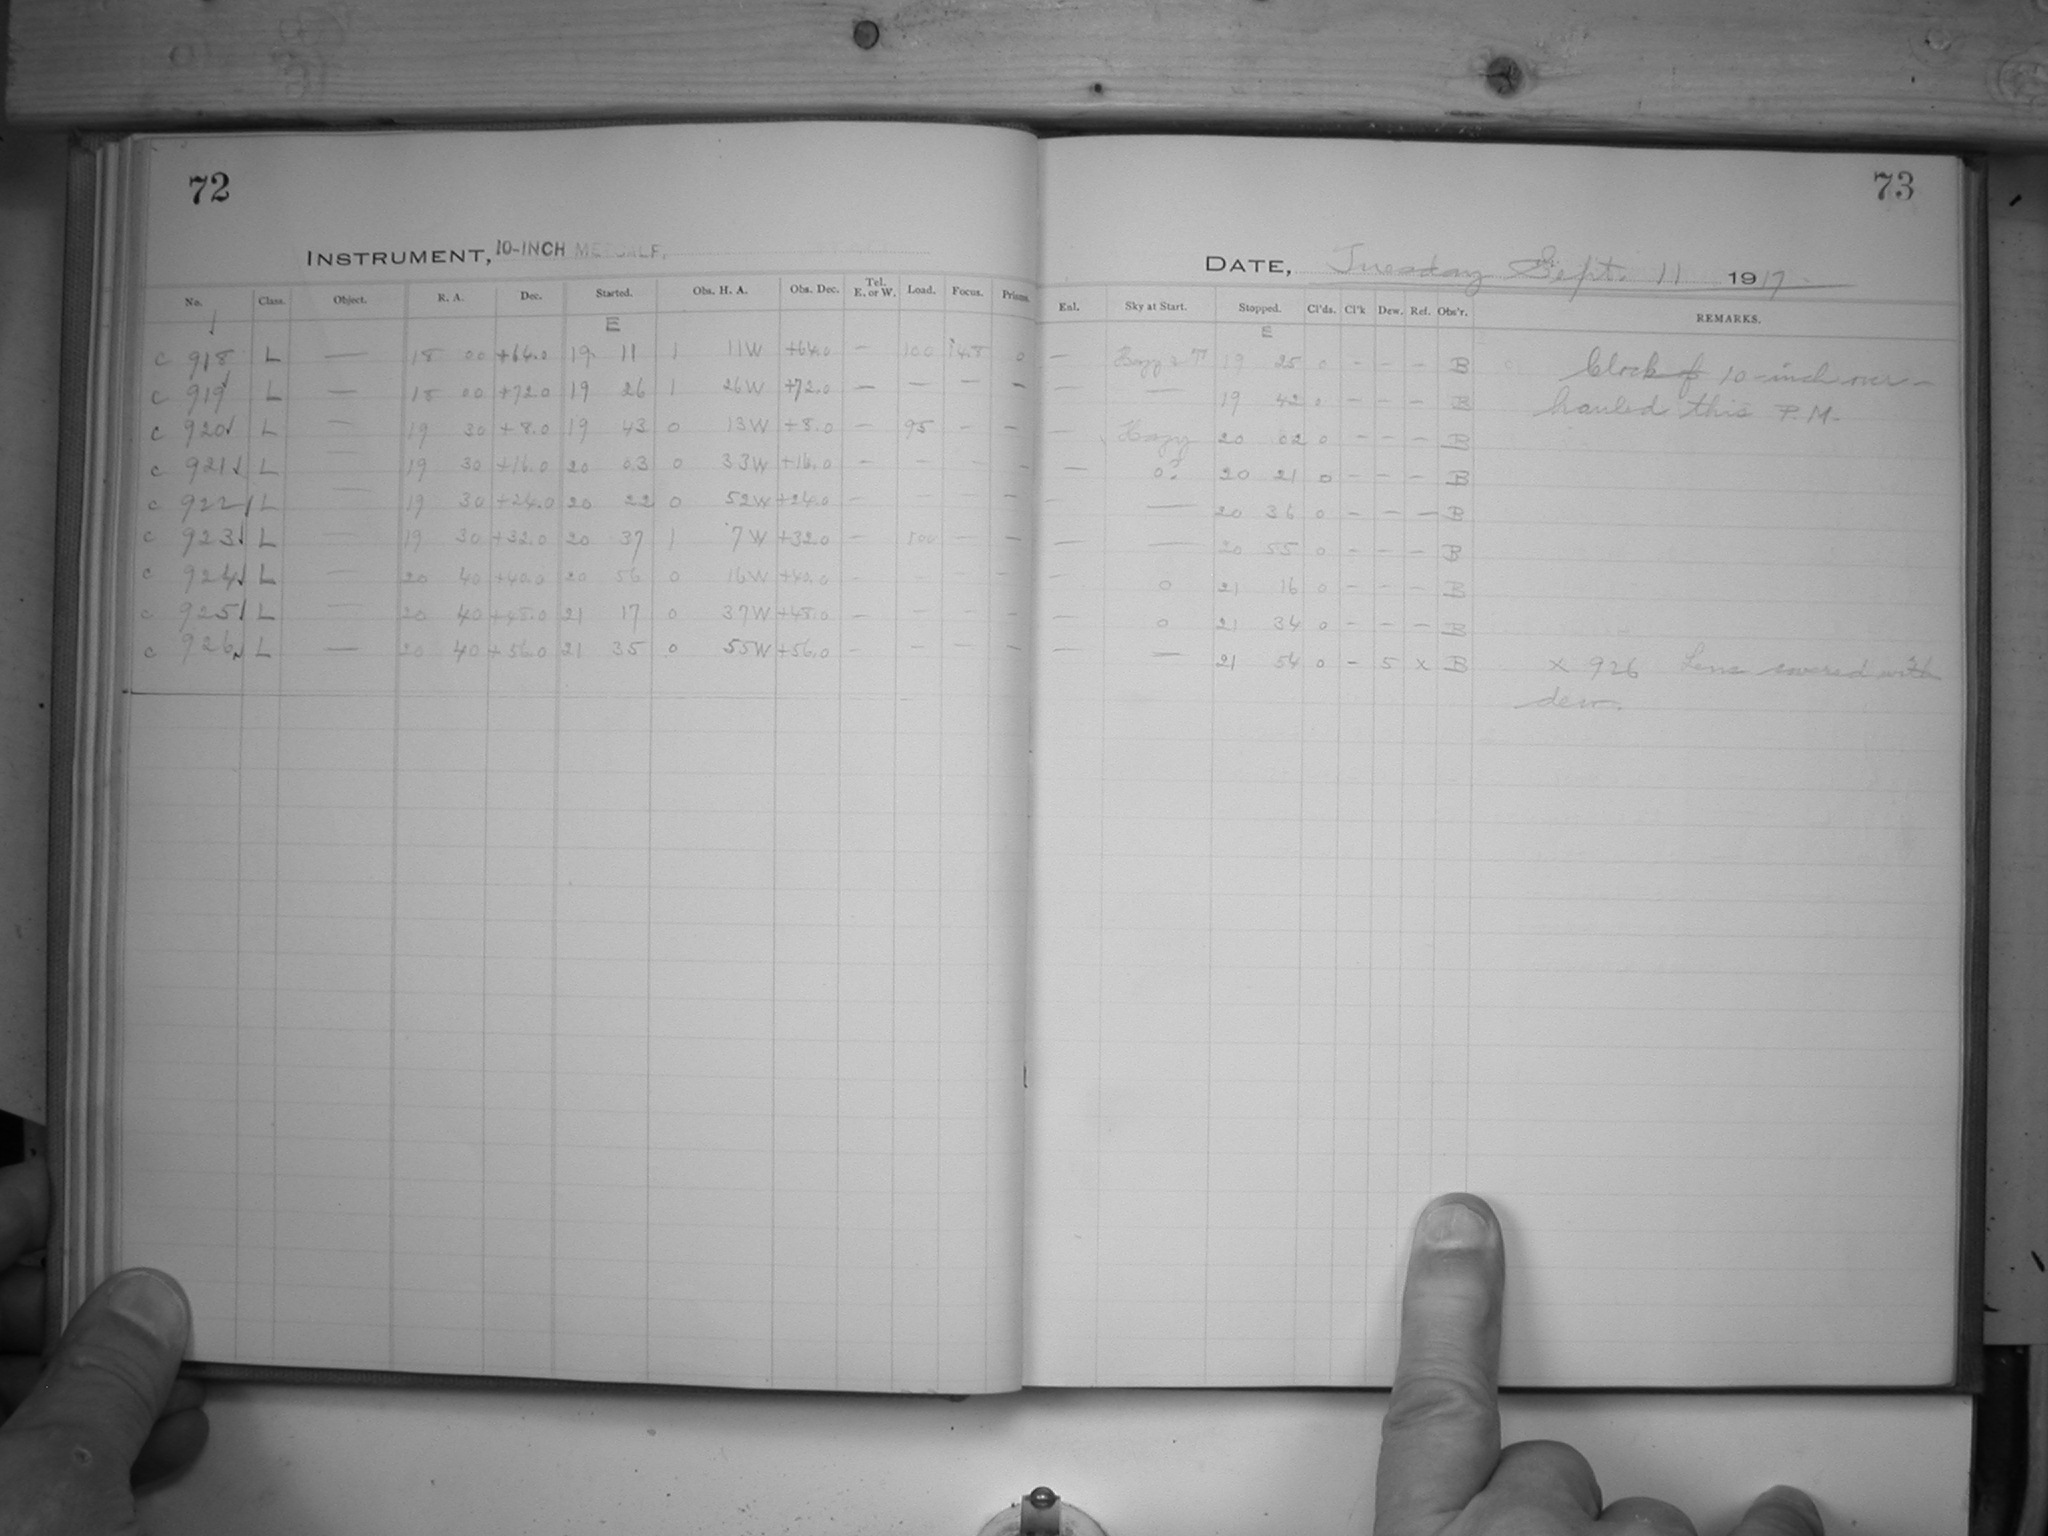 72
INSTRUMENT, 10-INCH METCALF.
No. Class. Object. R. A. Dec. Started. Obs. H. A. Obs. Dec. Tel. E. or W. Load. Focus. Prisms.
E
c 918 L — 18 00 +64.0 19 11 1 11W +64.0 — 100 14.8 0
c 919 L — 18 00 +72.0 19 26 1 26W +72.0 — — — —
c 920 L — 19 30 +8.0 19 43 0 13W +8.0 — 95 — —
c 921 L — 19 30 +16.0 20 03 0 33W +16.0 — — — —
c 922 L — 19 30 +24.0 20 22 0 52W +24.0 — — — —
c 923 L — 19 30 +32.0 20 37 1 7W +32.0 — 100 — —
c 924 L — 20 40 +40.0 20 56 0 16W +40.0 — — — —
c 925 L — 20 40 +48.0 21 17 0 37W +48.0 — — — —
c 926 L — 20 40 +56.0 21 35 0 55W +56.0 — — — —
73
DATE, Tuesday Sept. 11 1917
Enl. Sky at Start. Stopped. Cl'ds. Cl'k Dew. Ref. Obs'r. REMARKS.
E
— Hazy & T 19 25 0 — — — B Clock of 10-inch over-
— — 19 42 0 — — — B hauled this P.M.
— Hazy 20 02 0 — — — B
— 0? 20 21 0 — — — B
— — 20 36 0 — — — B
— — 20 55 0 — — — B
— 0 21 16 0 — — — B
— 0 21 34 0 — — — B
— — 21 54 0 — 5 x B x 926 Lens covered with
dew.